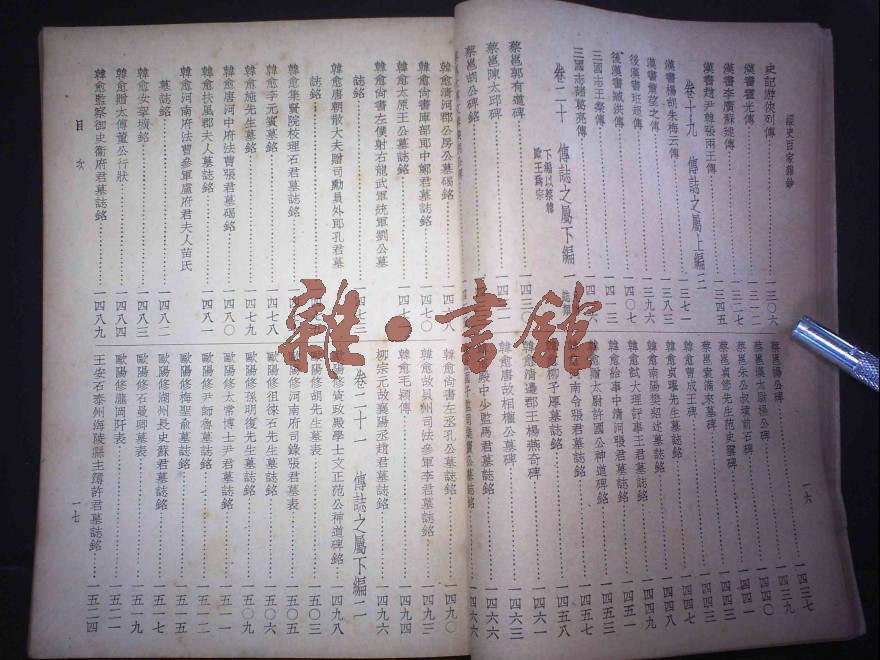 經史百家雜鈔
史記游俠列傳……一三〇六
漢書霍光傳
漢書李廣蘇建傳……一三二七
漢書趙尹韓張兩王傳……一三四五
卷十九 傳誌之屬上編二……一三七一
漢書楊胡朱梅云傳……一三八三
漢書蕭望之傳……一三九六
後漢書班超傳……一四〇七
後漢書臧洪傳
三國志王粲傳
三國志諸葛亮傳
卷二十 傳誌之屬下編一
下編以蔡韓
歐王爲宗
蔡邕郭有道碑……一四三〇
蔡邕陳太邱碑
蔡邕胡公碑銘
一六
蔡邕楊公碑……一四三七
蔡邕漢太尉楊公碑……一四三九
蔡邕朱公叔墳前石碑……一四四〇
蔡邕貞節先生范史雲碑……一四四一
蔡邕袁滿來墓碑……一四四三
韓愈曹成王碑
韓愈貞曜先生墓誌銘
韓愈南陽樊紹述墓誌銘
韓愈試大理評事王君墓誌銘
韓愈給事中清河張君墓誌銘……一四五一
韓愈贈太尉許國公神道碑銘
南令張君墓誌銘……一四五七
韓愈柳子厚墓誌銘……一四五八
清邊郡王楊燕奇碑……一四六一
韓愈唐故相權公墓碑……一四六三
殿中少監馬君墓誌銘……一四六六
韓愈清河郡公房公墓碣銘
韓愈尚書庫部郎中鄭君墓誌銘……一四七〇
韓愈太原王公墓誌銘
韓愈尚書左僕射右龍武軍統軍劉公墓
誌銘……一四七三
韓愈唐朝散大夫贈司勳員外郎孔君墓
誌銘
韓愈集賢院校理石君墓誌銘
韓愈李元賓墓銘
韓愈施先生墓銘……一四七九
韓愈唐河中府法曹張君墓碣銘……一四八〇
韓愈扶風郡夫人墓誌銘……一四八一
韓愈河南府法曹參軍盧府君夫人苗氏
墓誌銘……一四八二
韓愈女挐壙銘……一四八三
韓愈贈太傅董公行狀……一四八四
韓愈監察御史衞府君墓誌銘……一四八九
目次
韓愈尚書左丞孔公墓誌銘……一四九〇
韓愈故貝州司法參軍李君墓誌銘……一四九三
韓愈毛穎傳……一四九四
柳宗元故襄陽丞趙君墓誌銘……一四九六
卷二十一 傳誌之屬下編二
歐陽修資政殿學士文正范公神道碑銘……一四九八
歐陽修胡先生墓表……一五〇三
歐陽修河南府司錄張君墓表……一五〇五
歐陽修徂徠石先生墓誌銘……一五〇六
歐陽修孫明復先生墓誌銘……一五〇九
歐陽修太常博士尹君墓誌銘……一五一一
歐陽修尹師魯墓誌銘……一五一二
歐陽修梅聖俞墓誌銘……一五一五
歐陽修湖州長史蘇君墓誌銘……一五一七
歐陽修石曼卿墓表……一五一九
歐陽修瀧岡阡表……一五二一
王安石泰州海陵縣主簿許君墓誌銘……一五二四
一七
雜·書館